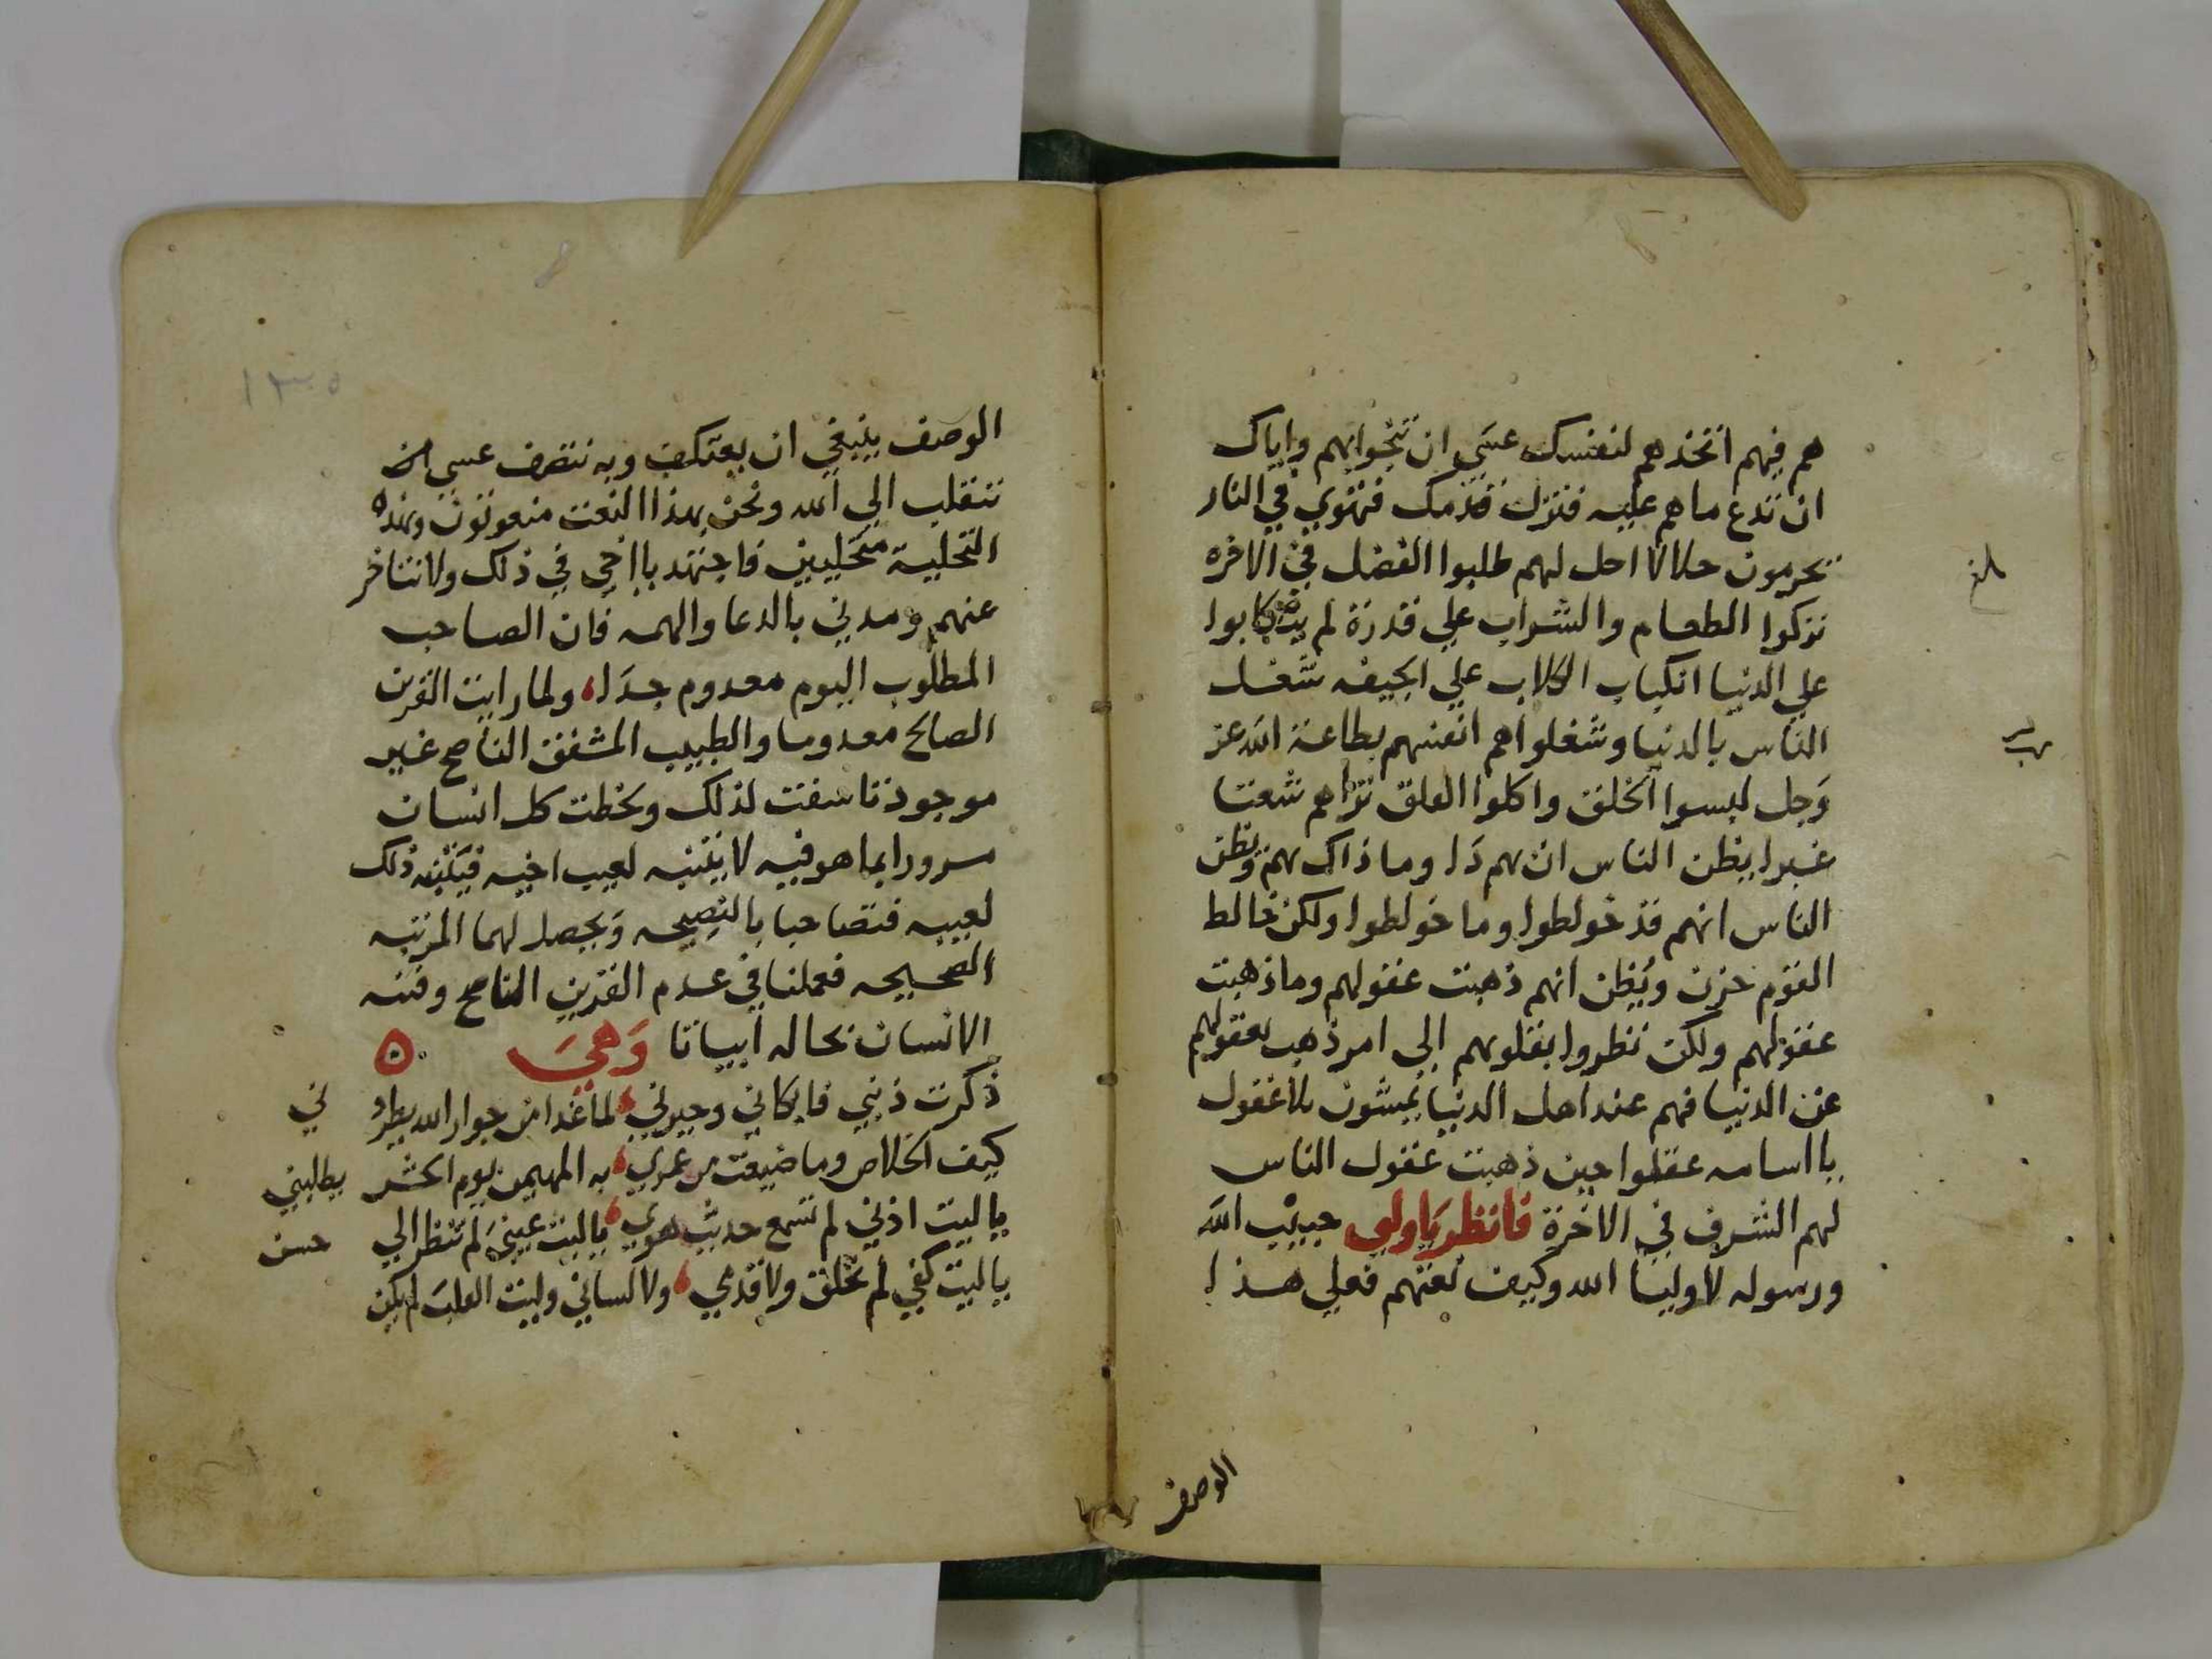 هم فيهم اتخذهم لنفسك عسى ان تنجوا بهم واياك
ان تدع ما هم عليه فتزل قدمك فتهوي في النار
يحرمون حلالا احل لهم طلبوا الفضل في الاخره
تركوا الطعام والشراب علي قدرة لم يتكابوا
علي الدنيا انكباب الكلاب علي الجيفه شغل
الناس بالدنيا وشغلوا هم انفسهم بطاعة الله عز
وجل لبسوا الخلق واكلوا الفلق تراهم شعثا
غبرا يظن الناس ان بهم دا وما ذاك بهم ويظن
الناس انهم قد خولطوا وما خولطوا ولكن خالط
القوم حزن ويظن انهم ذهبت عقولهم وما ذهبت
عقولهم ولكن نظروا بقلوبهم الي امر ذهب بعقولهم
عن الدنيا فهم عند اهل الدنيا يمشون بلا عقول
يا اسامه عقلوا حين ذهبت عقول الناس
لهم الشرف في الاخرة فانظر يا ولي حبيب الله
ورسوله لاوليا الله وكيف نعتهم فعلي هذا
الوصف
الوصف ينبغي ان يعتكف وبه نتصف عسي ان
ننقلب الي الله ونحن بهذا النعت منعوتون وبهذه
التحلية متحليين فاجتهد يا اخي في ذلك ولا تتاخر
عنهم ومدني بالدعا والهمه فان الصاحب
المطلوب اليوم معدوم جدا ولما رايت القرين
الصالح معدوما والطبيب المشفق الناصح غير
موجود تاسفت لذلك ولحظت كل انسان
مسرورا بما هو فيه لا ينبه لعيب اخيه فينبه ذلك
لعيبه فتصاحبا بالنصيحه ويحصل لهما المرتبه
الصحيحه فعملنا في عدم القرين الناصح وفتنه
الانسان بحاله ابياتا وهي ه
ذكرت ذنبي فابكاني وحيرني لما غدا من جوار الله يطردني
كيف الخلاص وما ضيعت من عمري به المهيمن يوم الحشر يطلبني
يا ليت اذني لم تسمع حديث هوي يا ليت عيني لم تنظر الي حسن
يا ليت كفي لم تخلق ولا قدمي ولا لساني وليت القلب لم يكن